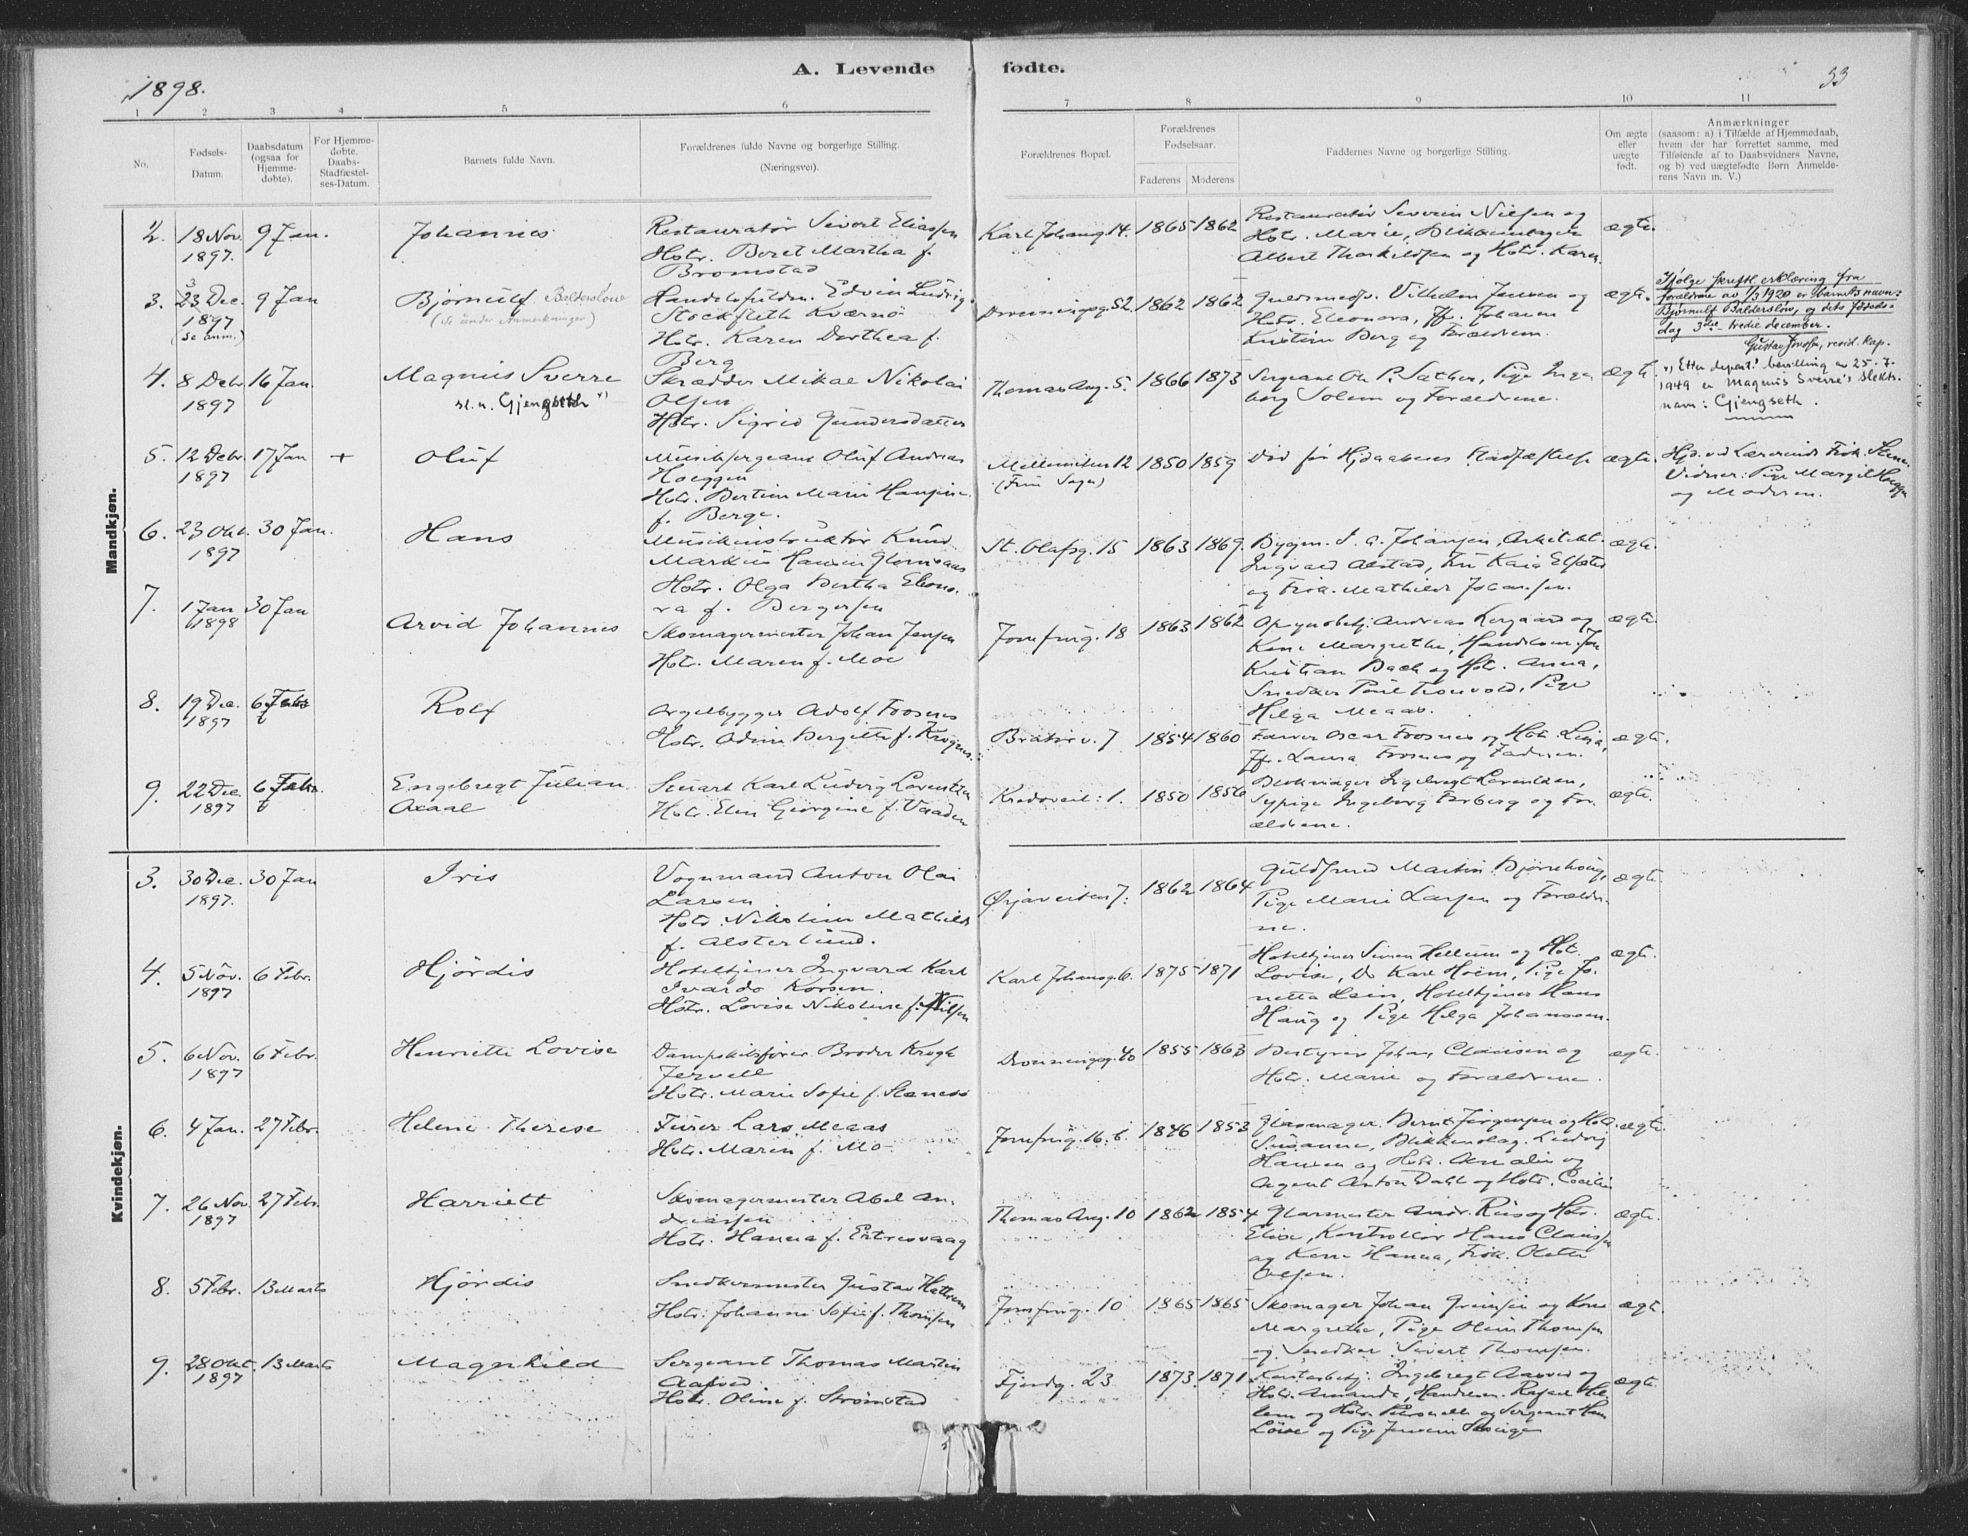 1898.
A. Levende fødte.
33
1 2 3 4 5 6 7 8 9 10 11
No.
Fødsels-
Datum.
Daabsdatum
(ogsaa for
Hjemme-
døbte).
For Hjemme-
døbte.
Daabs-
Stadfæstel-
ses-Datum.
Barnets fulde Navn.
Forældrenes fulde Navne og borgerlige Stilling.
(Næringsvei).
Forældrenes Bopæl.
Forældrenes
Fødselsaar.
Faderens Moderens
Faddernes Navne og borgerlige Stilling.
Om ægte
eller
uægte
født.
Anmærkninger
(saasom: a) i Tilfælde af Hjemmedaab,
hvem der har forrettet samme, med
Tilføiende af to Daabsvidners Navne,
og b) ved uægtefødte Børn Anmelde-
rens Navn m. V.)
Mandkjøn.
2. 18 Nov. 1897. 9 Jan. Johannes
Restauratør Sivert Eliassen
Hstr. Beret Martha f.
Bromstad
Karl Johansg. 14. 1865 1862
Restauratør Severin Nielsen og
Hstr. Marie, Blikkenslager
Albert Thorkildsen og Hstr. Karen
ægte.
3. 23 Dec. 1897 (se anm.) 9 Jan Bjørnulf Balderslow
(Se under Anmerkninger)
Handelsfuldm. Edvin Ludvig
Stockfleth Kværnø
Hstr. Karen Dorthea f.
Berg
Dronningsg. 52. 1862 1862
Guldsmedsv. Vilhelm Jensen og
Hstr. Eleonora, Jfr. Johanna
Kristine Berg og Forældrene.
ægte.
Ifølge skriftl. erklæring fra
forældrene av 1/3 1920 er barnets navn:
Bjørnulf Balderslow, og dets fødsels-
dag 3die - tredie december.
Gustav Jensen, resid. kap.
4. 8 Debr 1897 16 Jan. Magnus Sverre
sl.n. Gjengseth x)
Skrædder Mikal Nikolai
Olsen
Hstr. Sigrid Gundersdatter
Thomas Ang. 5. 1866 1873
Sergeant Ole P. Sæther, Pige Inge-
borg Solem og Forældrene.
ægte
x) Etter depart.s bevilling av 25-7-
1949 er Magnus Sverre's slekts-
navn: Gjengseth.
5. 12 Debr. 1897 17 Jan + Oluf
Musiksergeant Oluf Andreas
Hoeggen
Hstr. Bertine Marie Hansine
f. Berge.
Mellemilen 12
(Frue Sogn)
1850 1859
Død før Hjdaabens Stadfæstelse
ægte.
Hjd. ved Lærerinde Frk. Stene.
Vidner: Pige Margit Hoeggen
og Moderen.
6. 23 Okt. 1897 30 Jan. Hans
Musikinstruktør Knud
Markus Hansen Glomsaas
Hstr. Olga Bertha Eleono-
ra f. Bergersen
St. Olafsg. 15 1863 1869.
Bygm. J. A. Johansen, Arkitekt
Ingvald Alstad, Fru Kaia
og Frøk. Mathilde Johansen.
ægte.
7. 1 Jan 1898 30 Jan Arvid Johannes
Skomagermester Johan Jensen
Hstr. Maren f. Moe
Jomfrug. 18 1863 1862
Andreas og
Kone Margrethe,
Kristian Bach og Hstr. Anna,
Snedker Pige
Helga Meaas.
ægte.
8. 19 Dec. 1897 6 Febr Rolf
Orgelbygger Adolf Frosnes
Hstr. Odine Bergitte f. Krognes.
Bratørv. 7 1854 1860
Farver Oscar Frosnes og Hstr. Lina,
Jfr. Laura Frosnes og Faderen.
ægte.
9. 22 Dec 1897 6 Febr. Engebregt Julian
Axaal
Stuart Karl Ludvig Lorentzen
Hstr. Elen Georgine f. Vaaden
Kredsveit: 1. 1850 1856
Blokmager Ingebregt Lorentzen,
Sypige Ingeborg Forberg og For-
ældrene.
ægte.
Kvindekjøn.
3. 30 Dec. 1897. 30 Jan Iris
Vognmand Anton Olai
Larsen
Hstr. Nikoline Mathilde
f. Alsterlund.
Ørjaveiten 7: 1862 1864
Guldsmed Martin Bjørnhoug,
Pige Marie Larsen og Forældre-
ne.
ægte.
4. 5 Nov. 1897 6 Febr. Hjørdis
Hoteltjener Ingvard Karl
Ivardo Korsen.
Hstr. Lovise Nikoline f. Nilsen
Karl Johansg. 6. 1875 1871
Hoteltjener Simen Hellum og Hst.
Lovise, Do Karl Hoem, Pige Jo-
netta Lein, Hoteltjener Hans
Haug og Pige Helga Johanssen.
ægte.
5. 6 Nov. 1897 6 Febr. Henriette Lovise
Dampskibsfører Broder Krogh
Jervell
Hstr. Marie Sofie f. Stenersø
Dronningsg. 40 1855 1863
Bestyrer Johan Clausen og
Hstr. Marie og Forældrene.
ægte.
6. 4 Jan. 27 Febr. Helene Therese
Furer Lars Meaas
Hstr. Maren f. Mo
Jomfrug. 16.b. 1846 1853
Glasmager Bernt Jørgensen og Hstr.
Susanne, Blikkenslag. Ludvig
Hansen og Hstr. Amalie og
Agent Anton Dahl og Hstr. Cecilie
ægte.
7. 26 Nov. 1897 27 Febr. Harriett
Skomagermester Abel An-
dreassen
Hstr. Hanna f. Entresvaag
Thomas Ang. 10 1862 1854
Glarmester Andr. Riis og Hstr.
Elise, Kontrollør Hans Clausen
og Kone Hanna, Frøk. Olette
Olsen.
ægte.
8. 5 Febr. 13 Marts Hjørdis
Snedkermester Gustav Hattrem
Hstr. Johanne Sofie f. Thomsen
Jomfrug. 10 1865 1865
Skomager Johan Grønsen og Kone
Margrethe, Pige Oline Thomsen
og Snedker Sivert Thomsen.
ægte.
9. 28 Okt. 1897 13 Marts Magnhild
Sergeant Thomas Martin
Aasved
Hstr. Oline f. Strømstad
Fjordg. 23 1873. 1871.
Kontorbetj. Ingebregt Aasved og
Hstr. Amanda, Handelsm. Rafael Hel-
lem og Hstr. Petronelle og Sergeant
og Pige
ægte.